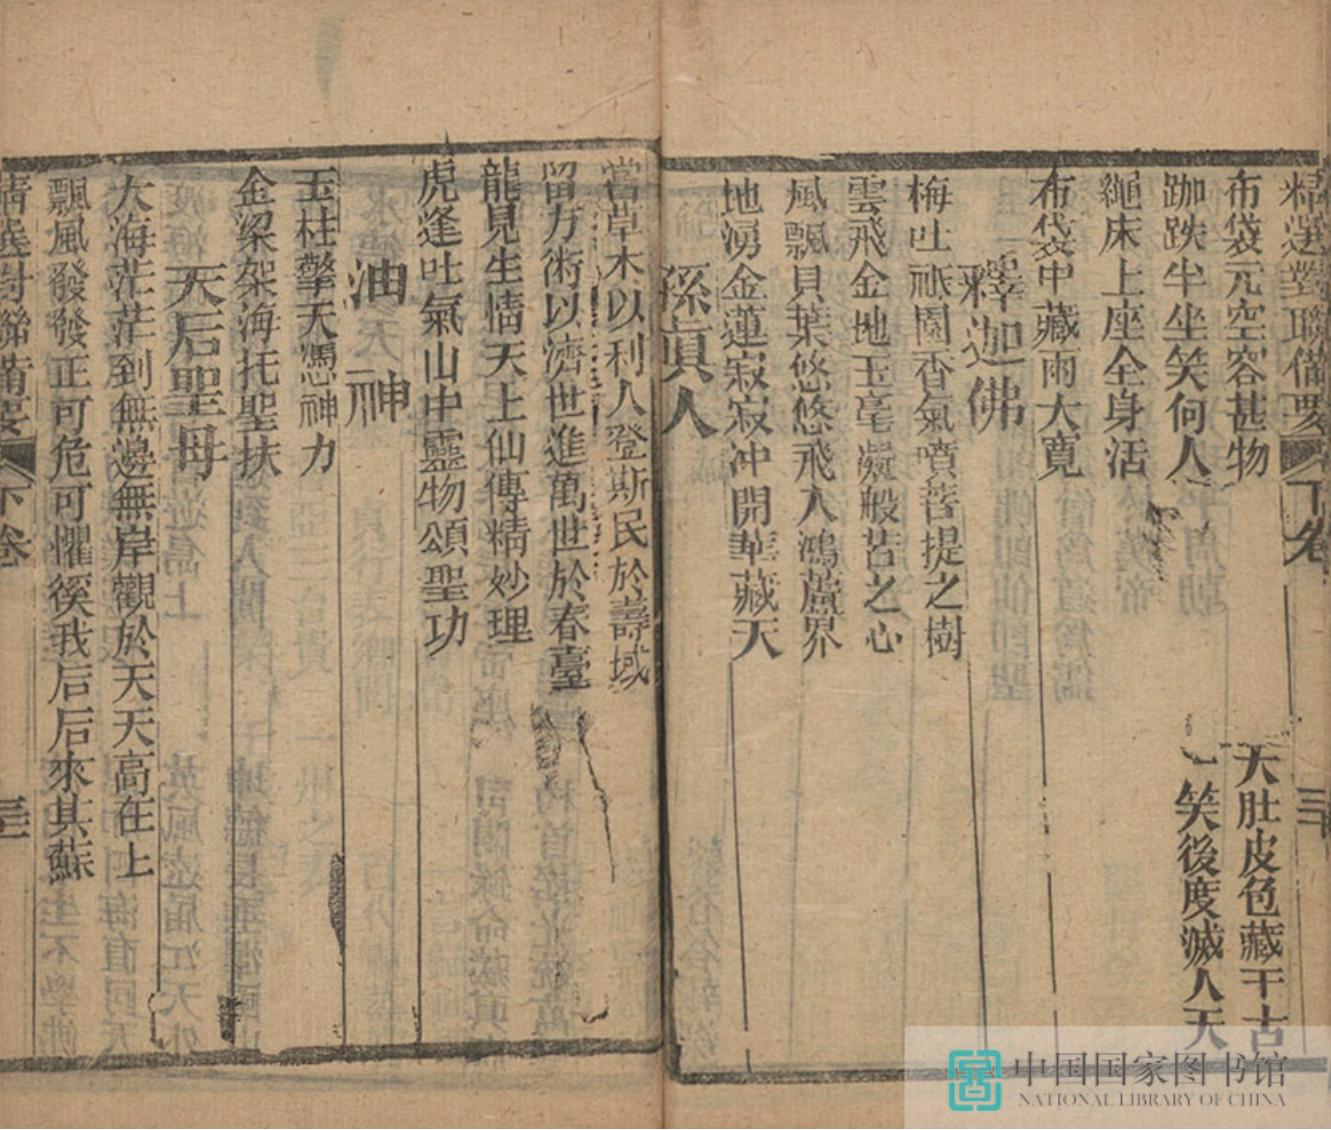 精選對聯備要 下卷 三十
布袋元空容甚物
大肚皮包藏干古
跏趺半坐笑何人
一笑後度滅人天
繩床上座全身活
布袋中藏雨大寬
釋迦佛
梅吐祗園香氣噴菩提之樹
雲飛金地玉毫凝般若之心
風飄貝葉悠悠飛入鴻蘆界
地湧金蓮寂寂冲開華藏天
孫真人
當草木以利人登斯民於壽域
留方術以濟世進萬世於春臺
龍見生情天上仙傳精妙理
虎逢吐氣山中靈物頌聖功
油神
玉柱擎天憑神力
金梁架海托聖扶
天后聖母
大海茫茫到無邊無岸觀於天天高在上
飄風發發正可危可懼徯我后后來其蘇
精選對聯備要 下卷
中国国家图书馆
NATIONAL LIBRARY OF CHINA